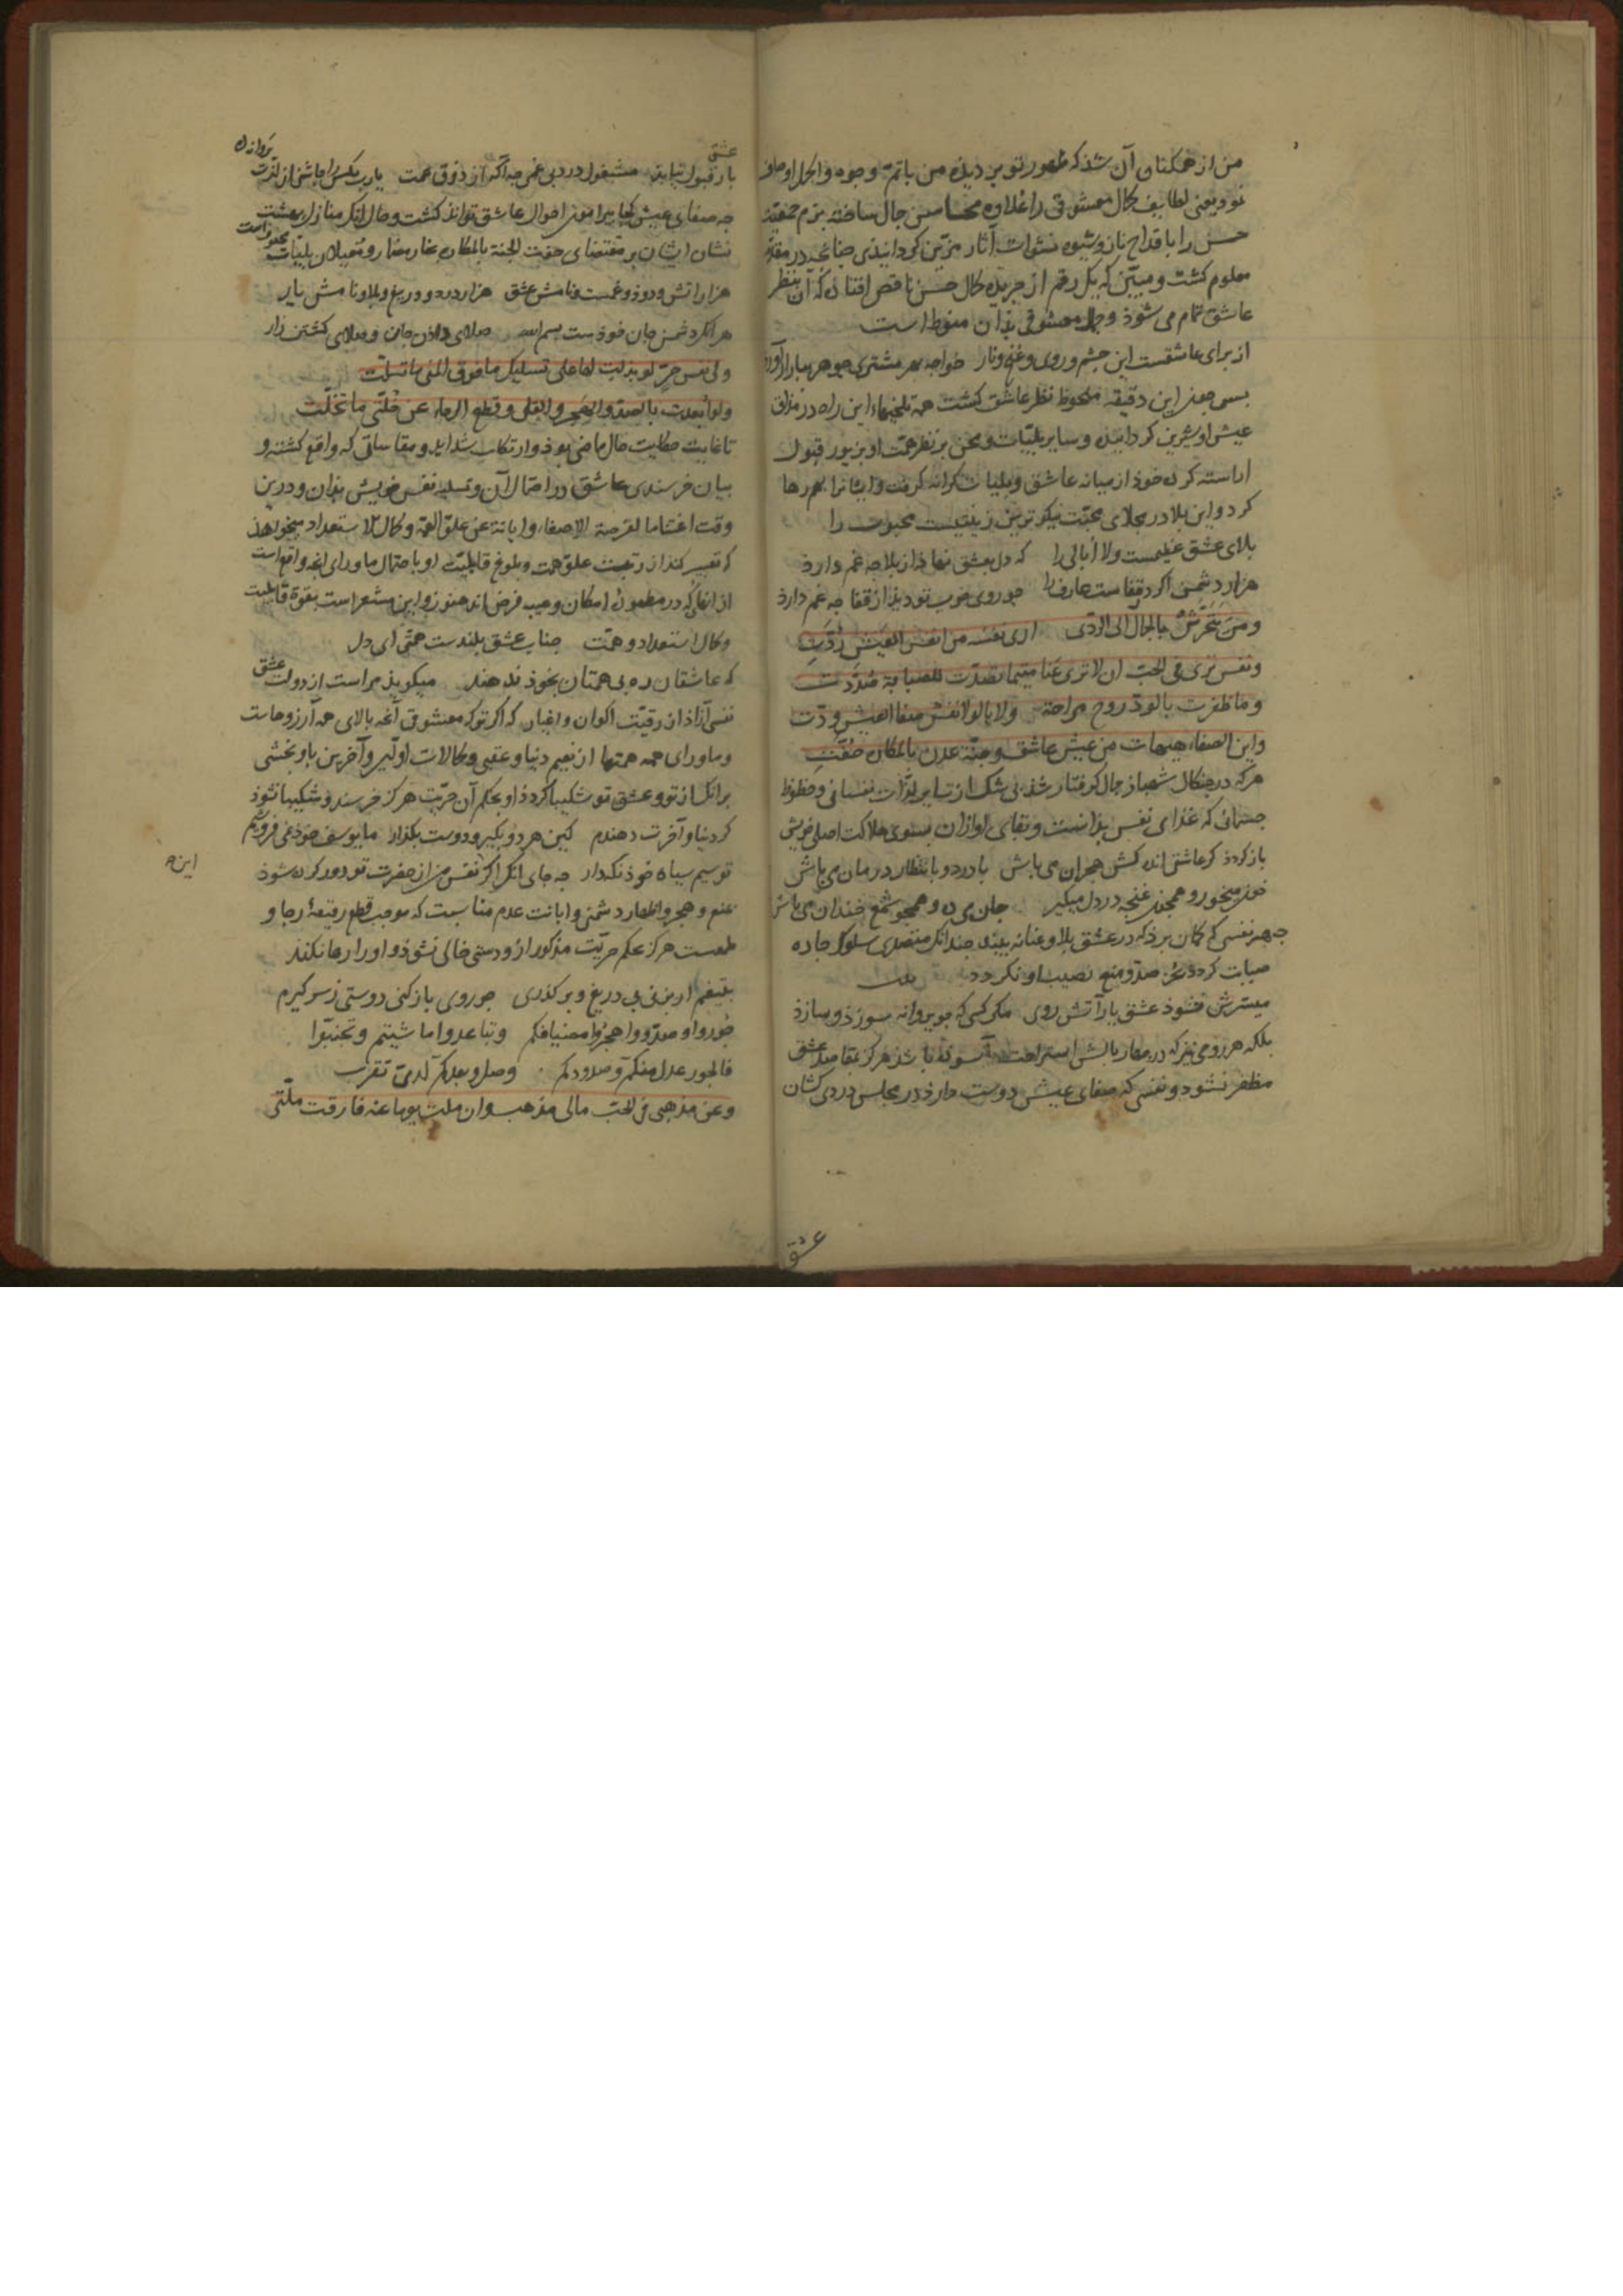 من از همکنان آن شد که ظهور تو بر دیده من باتم وجوه واکمل اوصاف
نمود یعنی لطایف کمال معشوقی را علاوه محاسن جمال ساخته بزم جمعیت
حسن را باقداح ناز و شیوه نشوات آثار مزین کردانیدی چنانچه در مقدمه
معلوم کشت و مبین که یک رقم از جریده کمال حسن ناقص افتاده که آن بنظر
عاشق تمام می شود و جمال معشوقی بذان منوط است
از برای عاشقست این چشم و روی و غنج و ناز خواجه بهر مشتری جوهر ببازار آورد
بس چون این دقیقه ملحوظ نظر عاشق کشت همه تلخیهاء این راه در مذاق
عیش او شیرین کردانیده و سایر بلیات و محن بر نظر همت او بزیور قبول
اراسته کرده خود از میانه عاشق و بلیات کرانه کرفت و ایشانرا بهم رها
کرد و این بلا در مجلای محبت نیکوترین زینتیست محبوب را
بلای عشق عظیمست ولا ابالی را که دل بعشق نهاد از بلا چه غم دارد
هزار دشمنی اکر در قفاست عارف را جو روی خوب تو دید از قفا چه غم دارد
ومن یتحرش بالجمال الی الردی اری نفسه من انفس العیش ردت
ونفس تری فی الحب ان لا تری عنا متی ما تصدت للصبابة صدت
وما ظفرت بالود روح مراحة ولا بالولا نفس صفا العیش ودت
واین الصفاء هیهات من عیش عاشق وجنة عدن بالمکاره حفت
هرکه در چنکال شهباز جمال کرفتار شد بی شک از سایر لذات نفسانی و حظوظ
جسمانی که غذای نفس بدانست و بقای او ازان بسوی هلاکت اصلی خویش
باز کردد کر عاشقی اندکش هجران می باش با درد و بانتظار درمان می باش
خون میخور و همچون غنچه در دل میکیر جان می ده و همچو شمع خندان می باش
چه هر نفسی که کمان برد که در عشق بلا و عنا نبیند چندانک متصدی سلوک جاده
صبابت کردد بجز صد و منع نصیب او نکردد
میسرش نشود عشق یار آتش روی مکر کسی که چو پروانه سوزد و سازد
بلکه هر روحی نیز که در مهاد بالش استراحت آسوده باشد هرکز بمقاصد عشق
مظفر نشود و نفسی که صفای عیش دوست دارد در مجلس دردی کشان
عشق
عشق
بار قبول نیابد مشغول درد بی غمی چه آکه از ذوق غمت یارب مکس را چاشنی از لذت پروانه ده
چه صفای عیش کجا پیرامون احوال عاشق تواند کشت وحال انک منازل بهشت
نشان ایشان بر مقتضای حفت الجنة بالمکاره بخار مضار و مغیلان بلیات محفوفست
هزار اتش و دود و غمست و نامش عشق هزار درد و دریغ و بلا و نامش یار
هرانک دشمن جان خودست بسم الله صلای دادن جان و صلای کشتن زار
ولی نفس حر لو بذلت لها علی تسلیک ما فوق المنی ما تسلت
ولو أبعدت بالصد والهجر والقلی وقطع الرجاء عن خلتی ما تخلت
تا غایت حکایت حال ماضی بود و ارتکاب شداید و مقاساتی که واقع کشته و
بیان خرسندی عاشق در احتمال آن و تسلیه نفس خویش بذان و درین
وقت اغتناما لفرصة الاصغاء وابانة عن علو الهمة وکمال الاستعداد میخواهد
که تعبیر کند از رتبت علو همت و بلوغ قابلیت او با حتمال ماورای انچه واقع است
از انها که در مطموره امکان و حیب فرض اند هنوز و این مشعر است بقوة قابلیت
وکمال استعداد و همت جناب عشق بلندست همتی ای دل
که عاشقان ره بی همتان بخود ندهند میکوید مراست از دولت عشق
نفسی آزاد از رقیت اکوان و اعیان که اکر تو که معشوقی آنچه بالای همه آرزوهاست
و ماورای همه همتها از نعیم دنیا و عقبی و کمالات اولین و آخرین باو بخشی
برانک از تو و عشق تو شکیبا کردد او بحکم آن حریت هرکز خرسند و شکیبا نشود
کر دنیا و آخرت دهندم کین هر دو بکیر و دوست بکذار ما یوسف خود نمی فروشیم
تو سیم سیاه خود نکهدار چه جای انک اکر نفس من از حضرت تو دور کرده شود
بمنع و هجر و اظهار دشمنی وابانت عدم مناسبت که موجب قطع رقیعه رجا و
طمعست هرکز بحکم حریت مذکور از دوستی خالی نشود و او را رها نکند
بتیغم ار بزنی بی دریغ و بر کذری چو روی باز کنی دوستی ز سر کیرم
جوروا وصدوا واهجروا مضیافکم وتباعدوا ما شیتم وتجنبوا
فالجور عدل منکم وصدودکم وصل وبعدکم لدی تقرب
وعن مذهبی فی الحب مالی مذهب وان ملت یوما عنه فارقت ملتی